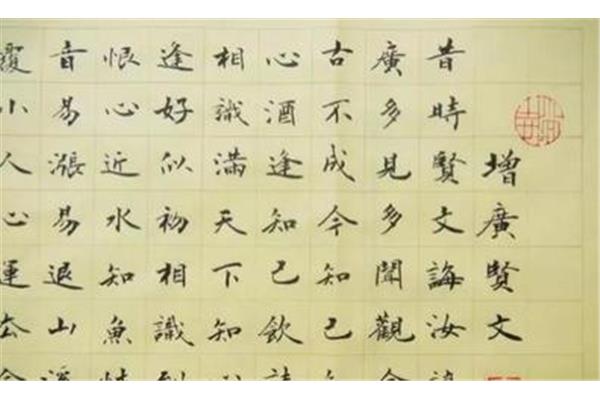 增廣賢文
昔時賢文誨汝
廣多見多聞觀今
古不成今知己知
心酒逢知己飲詩
相識滿天下知心
逢好似初相識到
恨心近水知魚
音易漲易退山溪
覆小人心運去金